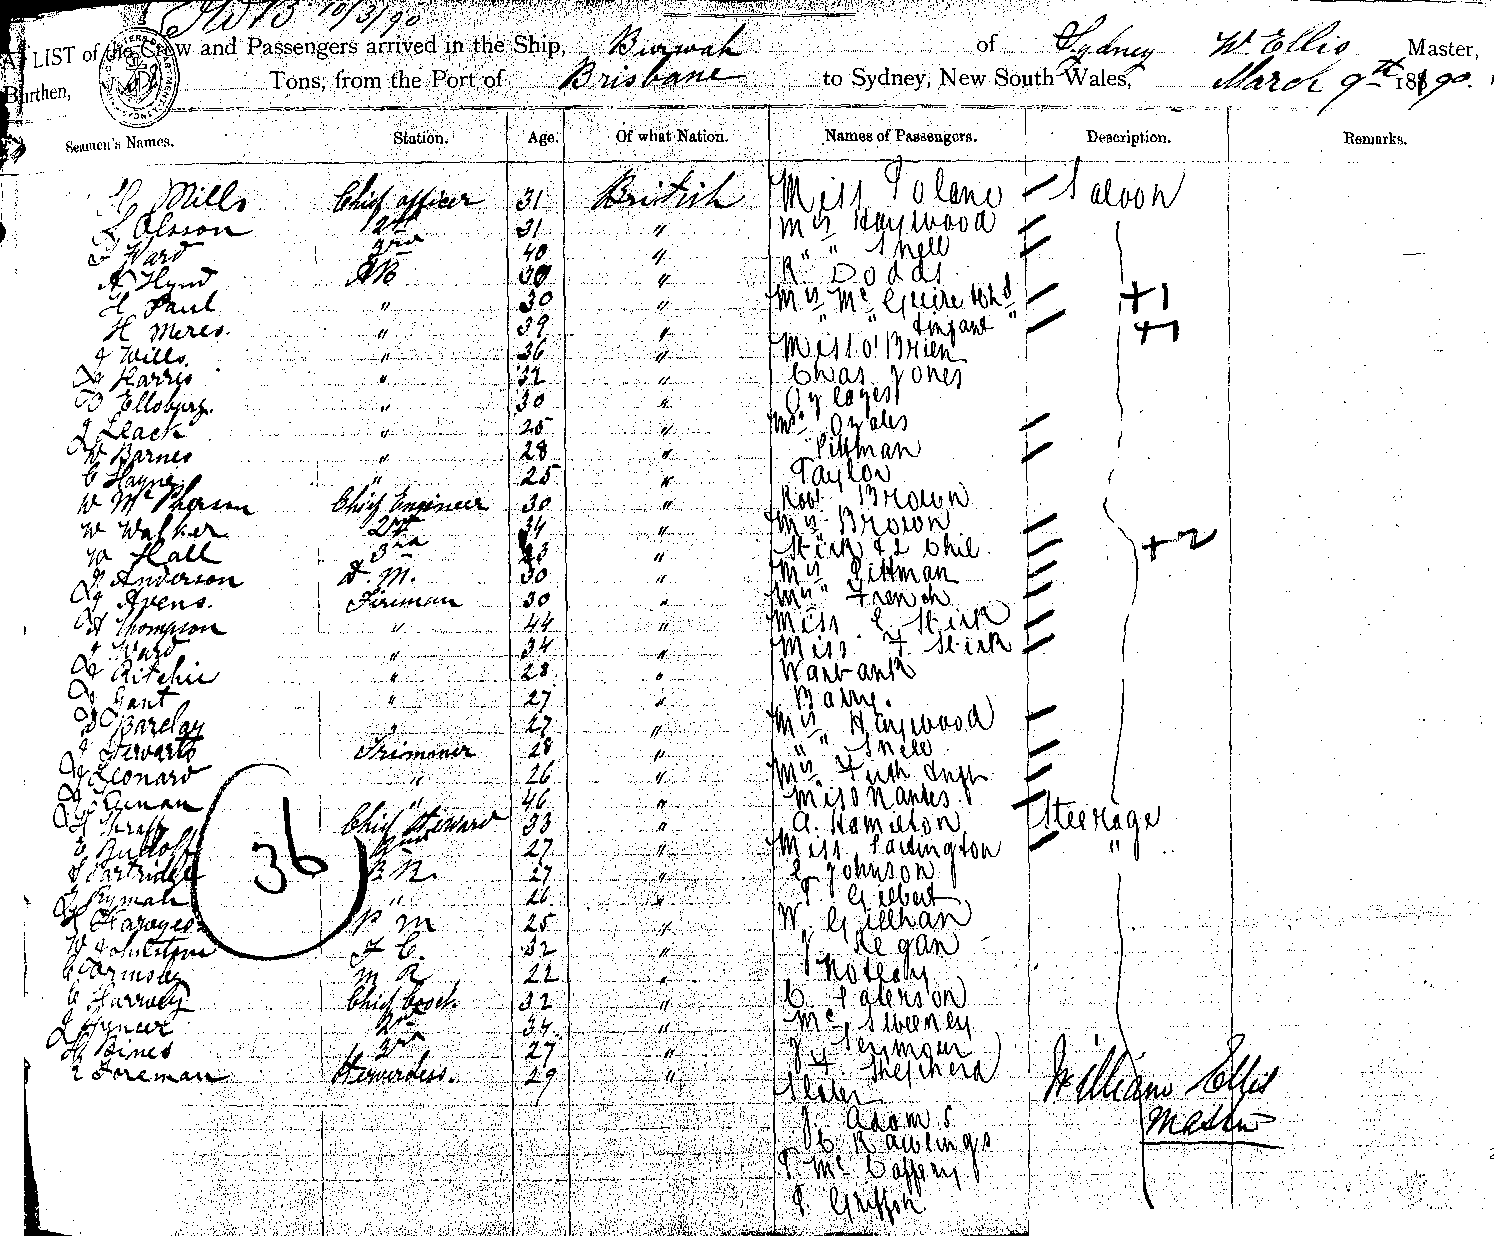 10/3/90
A LIST of the Crew and Passengers arrived in the Ship, Burwah of Sydney W Ellis Master,
Burthen, Tons, from the Port of Brisbane to Sydney, New South Wales, March 9th 1890.
Seamen's Names. Station. Age. Of what Nation. Names of Passengers. Description. Remarks.
Mills Chief officer 31 British Miss Tolano Saloon
L Olsson 2nd 31 " Mrs Haywood
Ward 3rd 40 " " " Snell
A Hynd AB 30 " R Dodds
H Paul " 30 " Mrs Mc Guire & Chd +1
H Meres. " 39 " " " Infant " +1
J Wills " 36 " Miss O'Brien
Harris " 32 " Chas Jones
Ellsberg. " 30 "
J Leack " 25 "
W Barnes " 28 " Pittman
C Hayne " 25 " Taylor
W McPherson Chief Engineer 30 " Robt Brown
W Walker 2nd 34 " Mrs Brown
W Hall 3rd 23 " Stirk & 2 Chil +2
J Anderson D.M. 30 " Mrs Pittman
J Avens. Fireman 30 " Mrs French
A Thompson " 44 " Miss E. Stirk
J Ward " 34 " Miss F Stirk
Ritchie " 28 " Warbank
Gant " 27 " Barry.
Barclay " 27 " Mrs Haywood
J Stewart Trimmer 28 " " " Snell
Leonard " 26 " Mrs Inft
" 46 " Miss Nantes
Chief Steward 33 " A. Hamilton Steerage
2nd 27 " Miss Partington "
Partridge B.R. 27 " C Johnson
" 26 " T Gilbert
Hargves P M 25 " W Gillhan
W Johnstone F C. 32 " J Regan
C Ormsby M R 22 "
C Chief Cook 32 " C. Paterson
J Spencer 2nd 34 " Mc Sweeney
Bines 3rd 27 " J Seymour
Foreman Stewardess. 29 " F Shepherd
Slater
J. Adams
C Rawlings
T Mc Caffery
T. Griffin
36
William Ellis
Master